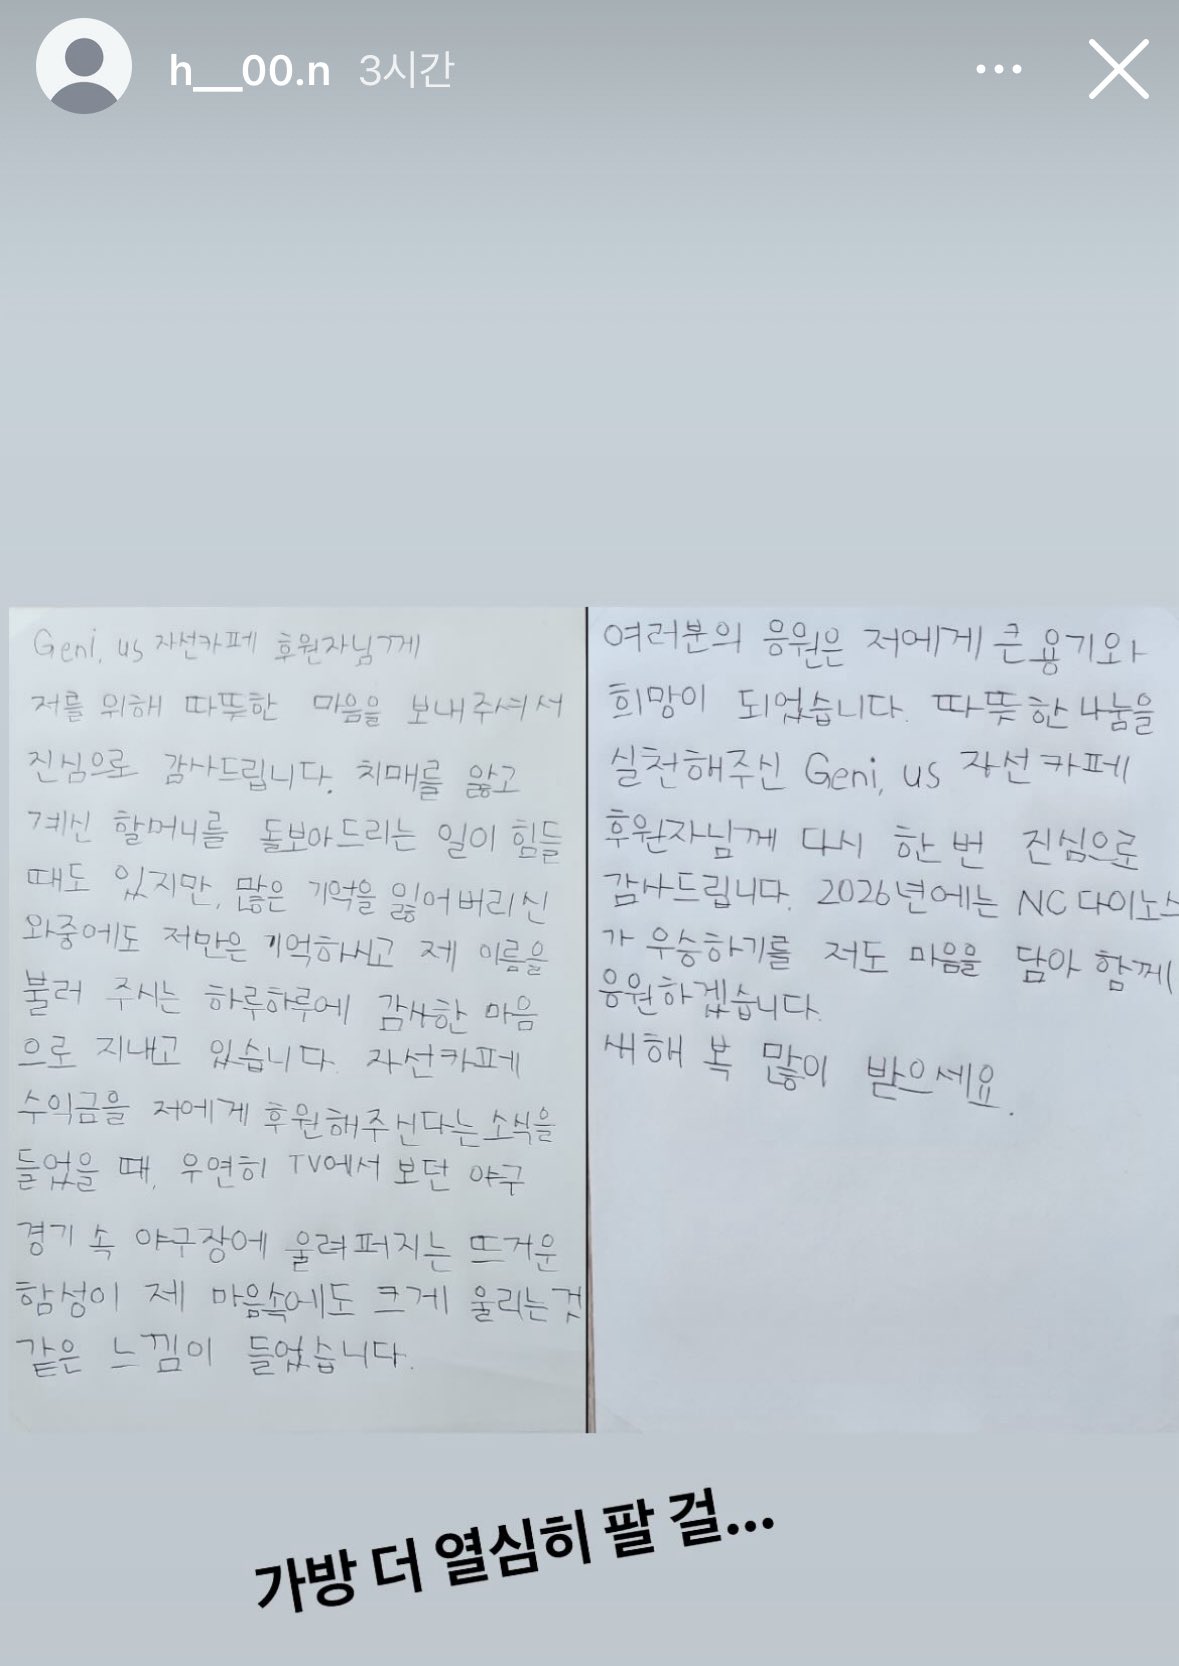 h__00.n 3시간
Geni, us 자선카페 후원자님께
저를 위해 따뜻한 마음을 보내주셔서
진심으로 감사드립니다. 치매를 앓고
계신 할머니를 돌보아드리는 일이 힘들
때도 있지만, 많은 기억을 잃어버리신
와중에도 저만은 기억하시고 제 이름을
불러 주시는 하루하루에 감사한 마음
으로 지내고 있습니다. 자선카페
수익금을 저에게 후원해주신다는 소식을
들었을 때, 우연히 TV에서 보던 야구
경기 속 야구장에 울려퍼지는 뜨거운
함성이 제 마음속에도 크게 울리는것
같은 느낌이 들었습니다.
여러분의 응원은 저에게 큰 용기와
희망이 되었습니다. 따뜻한 나눔을
실천해주신 Geni, us 자선카페
후원자님께 다시 한 번 진심으로
감사드립니다. 2026년에는 NC 다이노스
가 우승하기를 저도 마음을 담아 함께
응원하겠습니다.
새해 복 많이 받으세요.
가방 더 열심히 팔 걸...